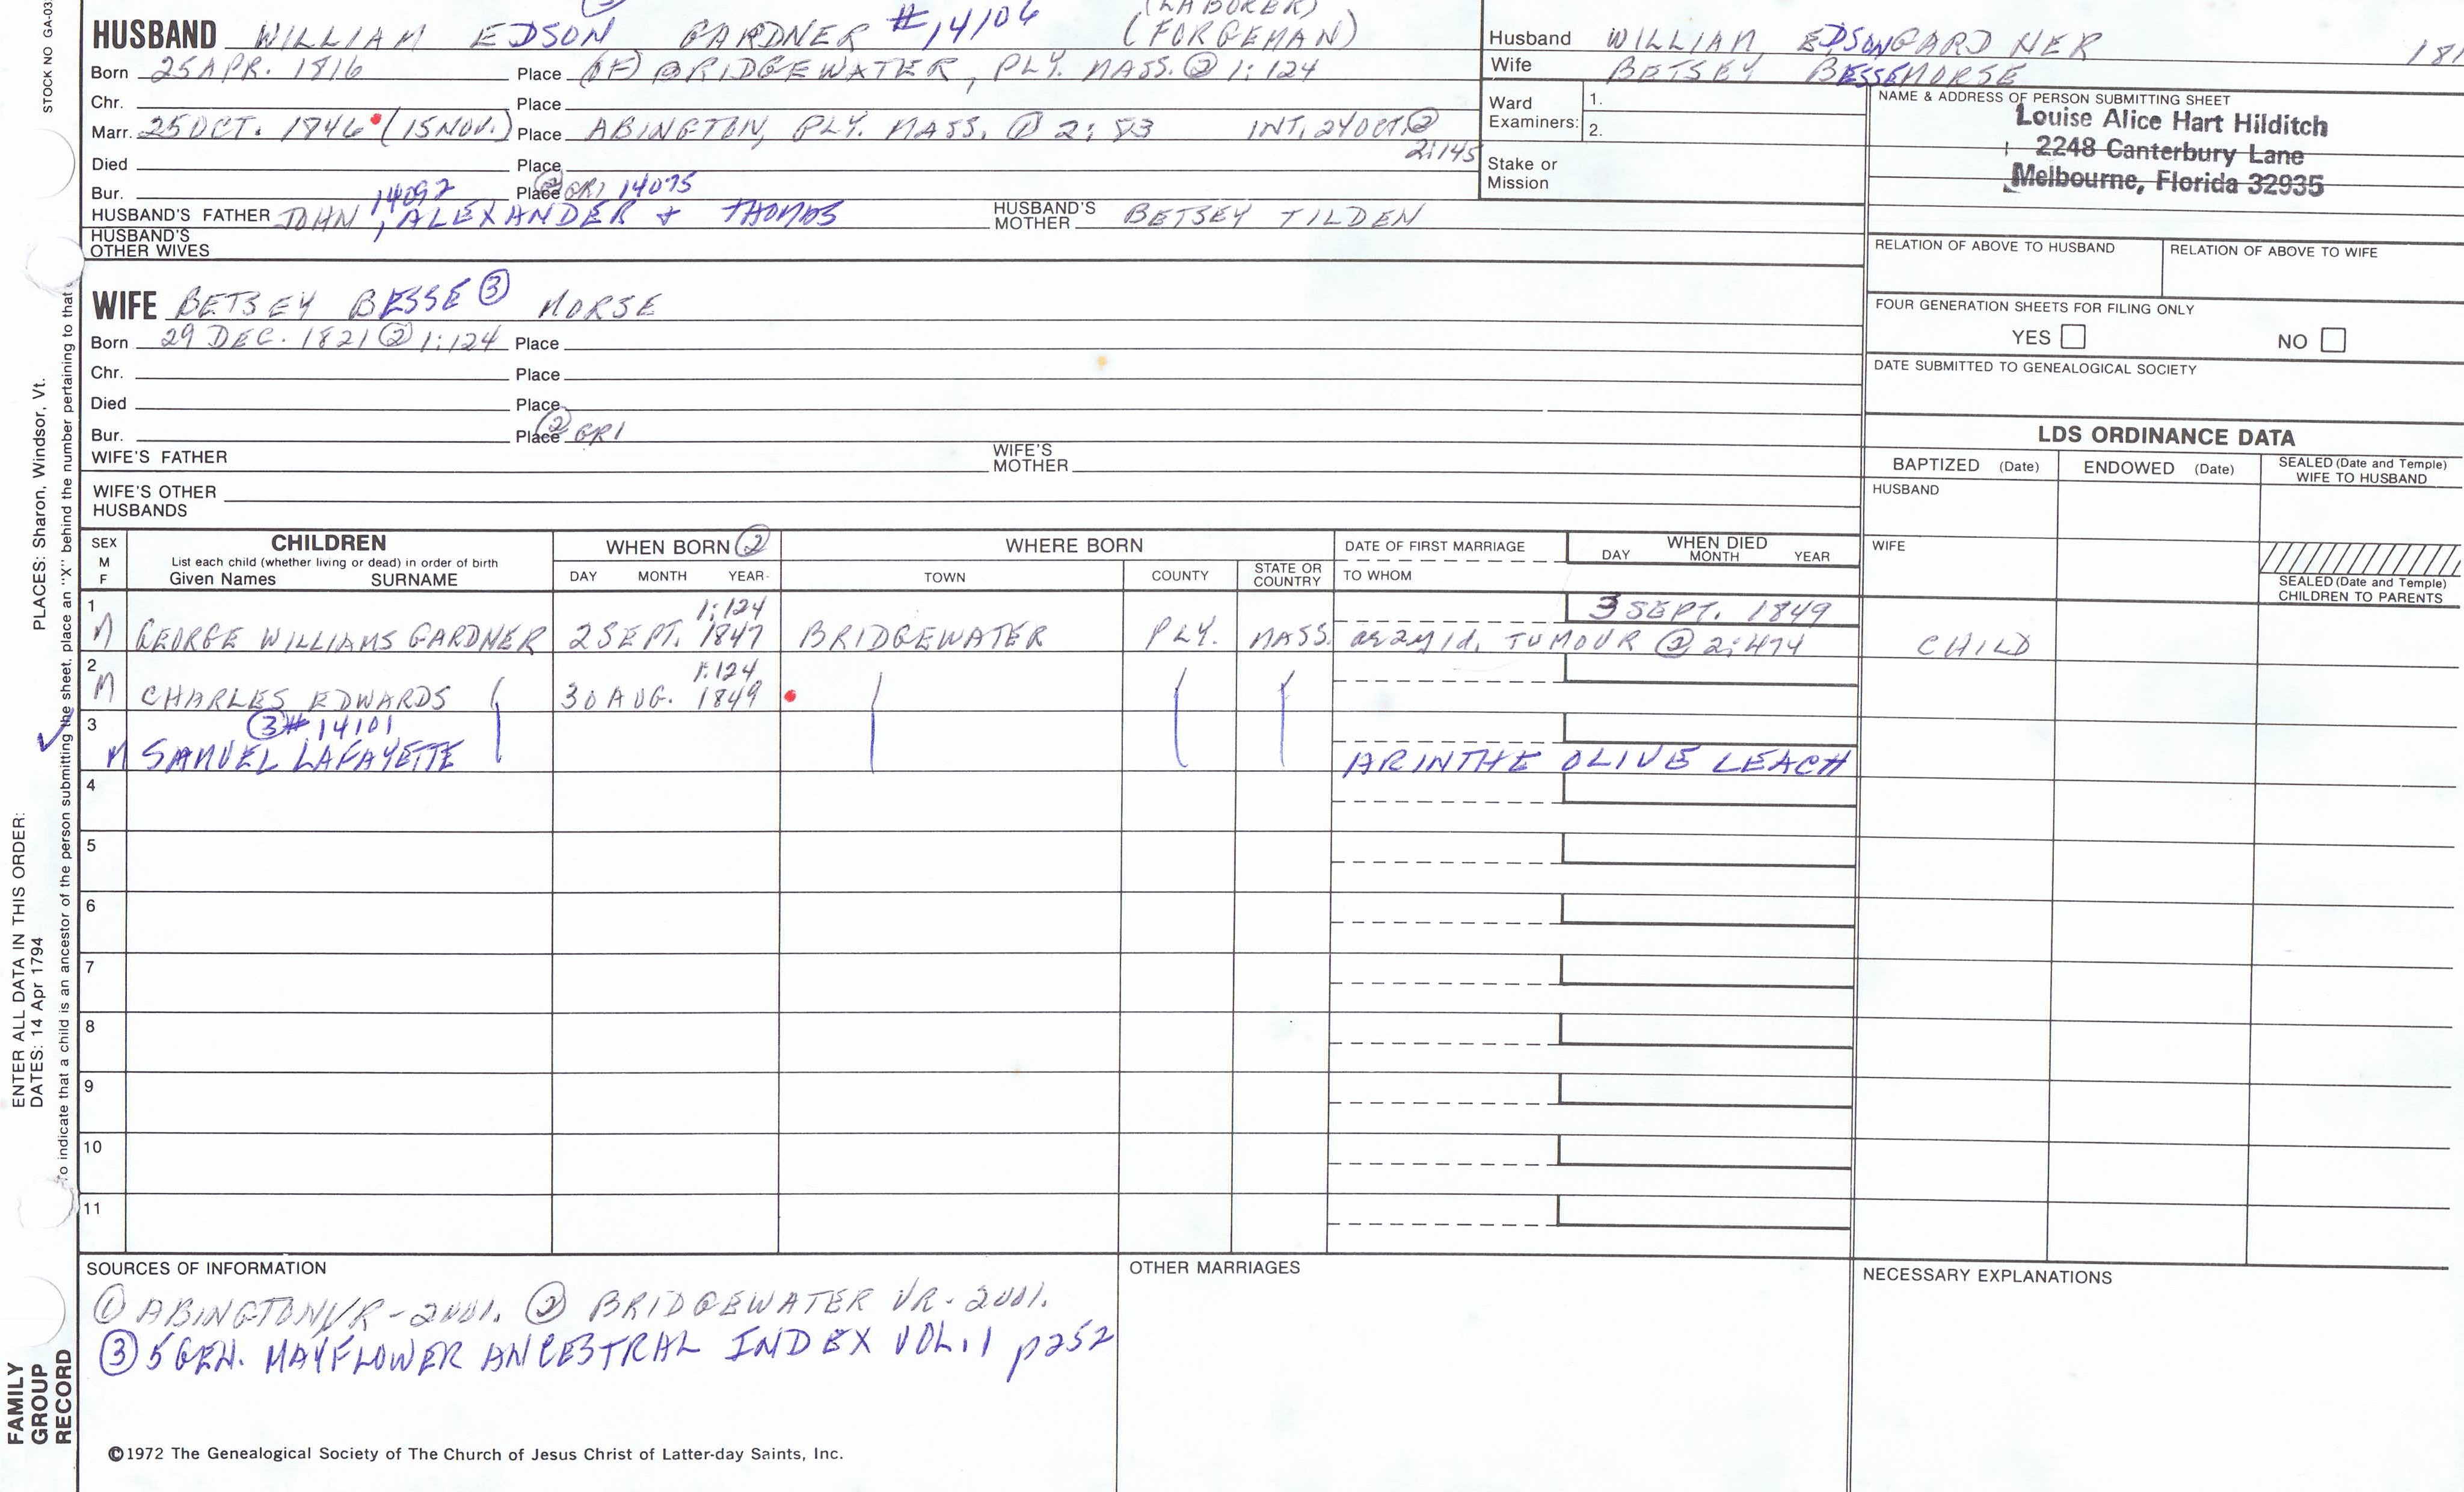 (LABORER)
HUSBAND WILLIAM EDSON GARDNER #14106 (FORGEMAN)
Born 25 APR. 1816 Place (OF) BRIDGEWATER, PLY. MASS. ② 1:124
Chr. Place
Marr. 25 OCT. 1846 (15 NOV.) Place ABINGTON, PLY. MASS. ① 2:83 INT. 24 OCT. ②
2:145
Died Place
Bur. Place ② GR1 14095
14097
HUSBAND'S FATHER JOHN, ALEXANDER + THOMAS HUSBAND'S MOTHER BETSEY TILDEN
HUSBAND'S
OTHER WIVES
Husband WILLIAM EDSON GARDNER 181
Wife BETSEY BESSE MORSE
Ward
Examiners:
1.
2.
Stake or
Mission
NAME & ADDRESS OF PERSON SUBMITTING SHEET
Louise Alice Hart Hilditch
2248 Canterbury Lane
Melbourne, Florida 32935
RELATION OF ABOVE TO HUSBAND RELATION OF ABOVE TO WIFE
FOUR GENERATION SHEETS FOR FILING ONLY
YES NO
DATE SUBMITTED TO GENEALOGICAL SOCIETY
WIFE BETSEY BESSE ③ MORSE
Born 29 DEC. 1821 ② 1:124 Place
Chr. Place
Died Place
Bur. Place ② GR1
WIFE'S FATHER WIFE'S MOTHER
WIFE'S OTHER
HUSBANDS
LDS ORDINANCE DATA
BAPTIZED (Date) ENDOWED (Date) SEALED (Date and Temple)
WIFE TO HUSBAND
HUSBAND
WIFE
SEALED (Date and Temple)
CHILDREN TO PARENTS
SEX
M
F
CHILDREN
List each child (whether living or dead) in order of birth
Given Names SURNAME
WHEN BORN ②
DAY MONTH YEAR
WHERE BORN
TOWN COUNTY STATE OR COUNTRY
DATE OF FIRST MARRIAGE
TO WHOM
WHEN DIED
DAY MONTH YEAR
1 1:124 3 SEPT. 1849
M GEORGE WILLIAMS GARDNER 2 SEPT. 1847 BRIDGEWATER PLY. MASS. ae 2y 1d. TUMOUR ② 2:474 CHILD
2 1:124
M CHARLES EDWARDS 30 AUG. 1849
3 ③ #14101
M SAMUEL LAFAYETTE ARINTHE OLIVE LEACH
4
5
6
7
8
9
10
11
SOURCES OF INFORMATION
① ABINGTON VR-2001. ② BRIDGEWATER VR-2001.
③ 5 GEN. MAYFLOWER ANCESTRAL INDEX VOL. 1 p252
OTHER MARRIAGES
NECESSARY EXPLANATIONS
©1972 The Genealogical Society of The Church of Jesus Christ of Latter-day Saints, Inc.
STOCK NO GA-03
PLACES: Sharon, Windsor, Vt.
ENTER ALL DATA IN THIS ORDER:
DATES: 14 Apr 1794
To indicate that a child is an ancestor of the person submitting the sheet, place an "X" behind the number pertaining to that
FAMILY
GROUP
RECORD